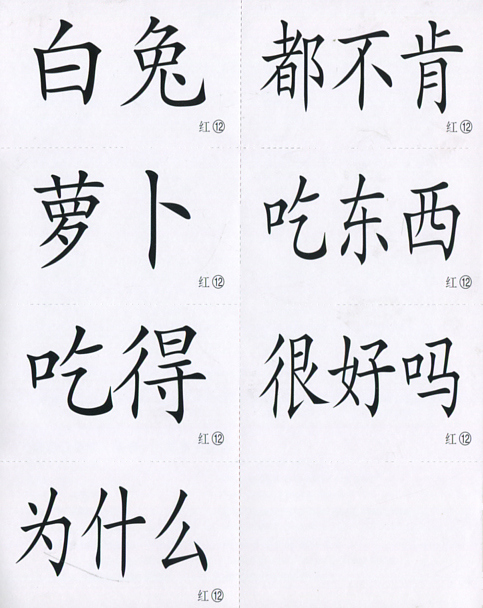 白兔
红⑫
都不肯
红⑫
萝卜
红⑫
吃东西
红⑫
吃得
红⑫
很好吗
红⑫
为什么
红⑫